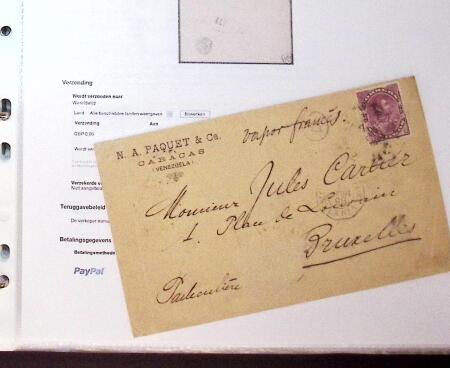 Verzending
Wordt verzonden naar
Wereldwijd
Land: Alle beschikbare landen weergeven
Bijwerken
GBP 0,00
Verzekerde verze
Niet aangebode
Teruggavebeleid
De verkoper
Betalingsgegevens
Betalingsmethode
PayPal
N. A. PAQUET & Co.
CARACAS
(VENEZUELA)
vapor français.
Monsieur Jules Cartier
1. Place de Louvain
Bruxelles
Particulière